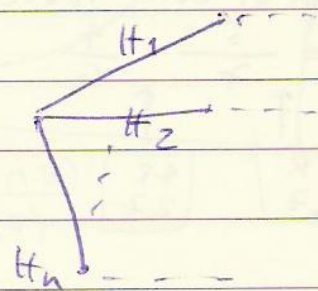 H₁
H₂
Hₙ